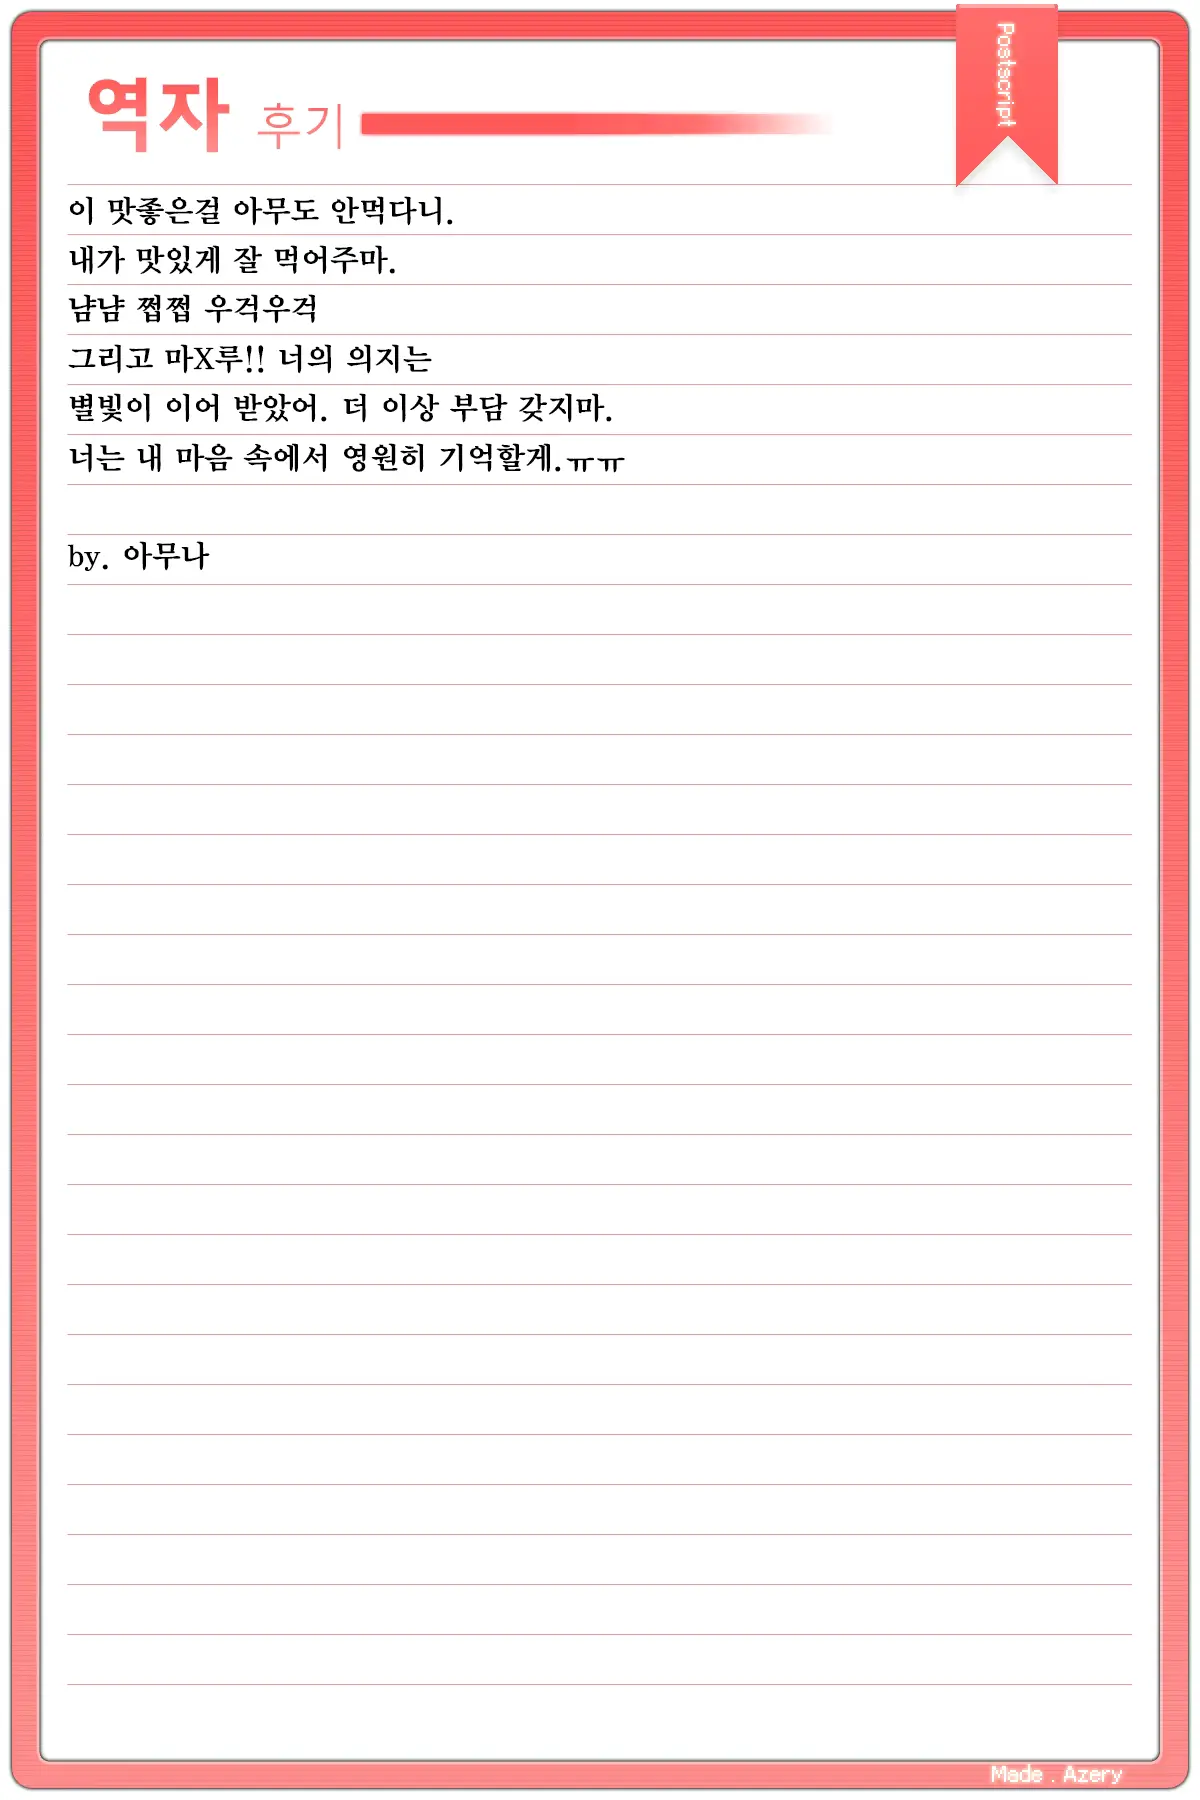 Postscript
역자 후기
이 맛좋은걸 아무도 안먹다니.
내가 맛있게 잘 먹어주마.
냠냠 쩝쩝 우걱우걱
그리고 마X루!! 너의 의지는
별빛이 이어 받았어. 더 이상 부담 갖지마.
너는 내 마음 속에서 영원히 기억할게.ㅠㅠ
by. 아무나
Made . Azery